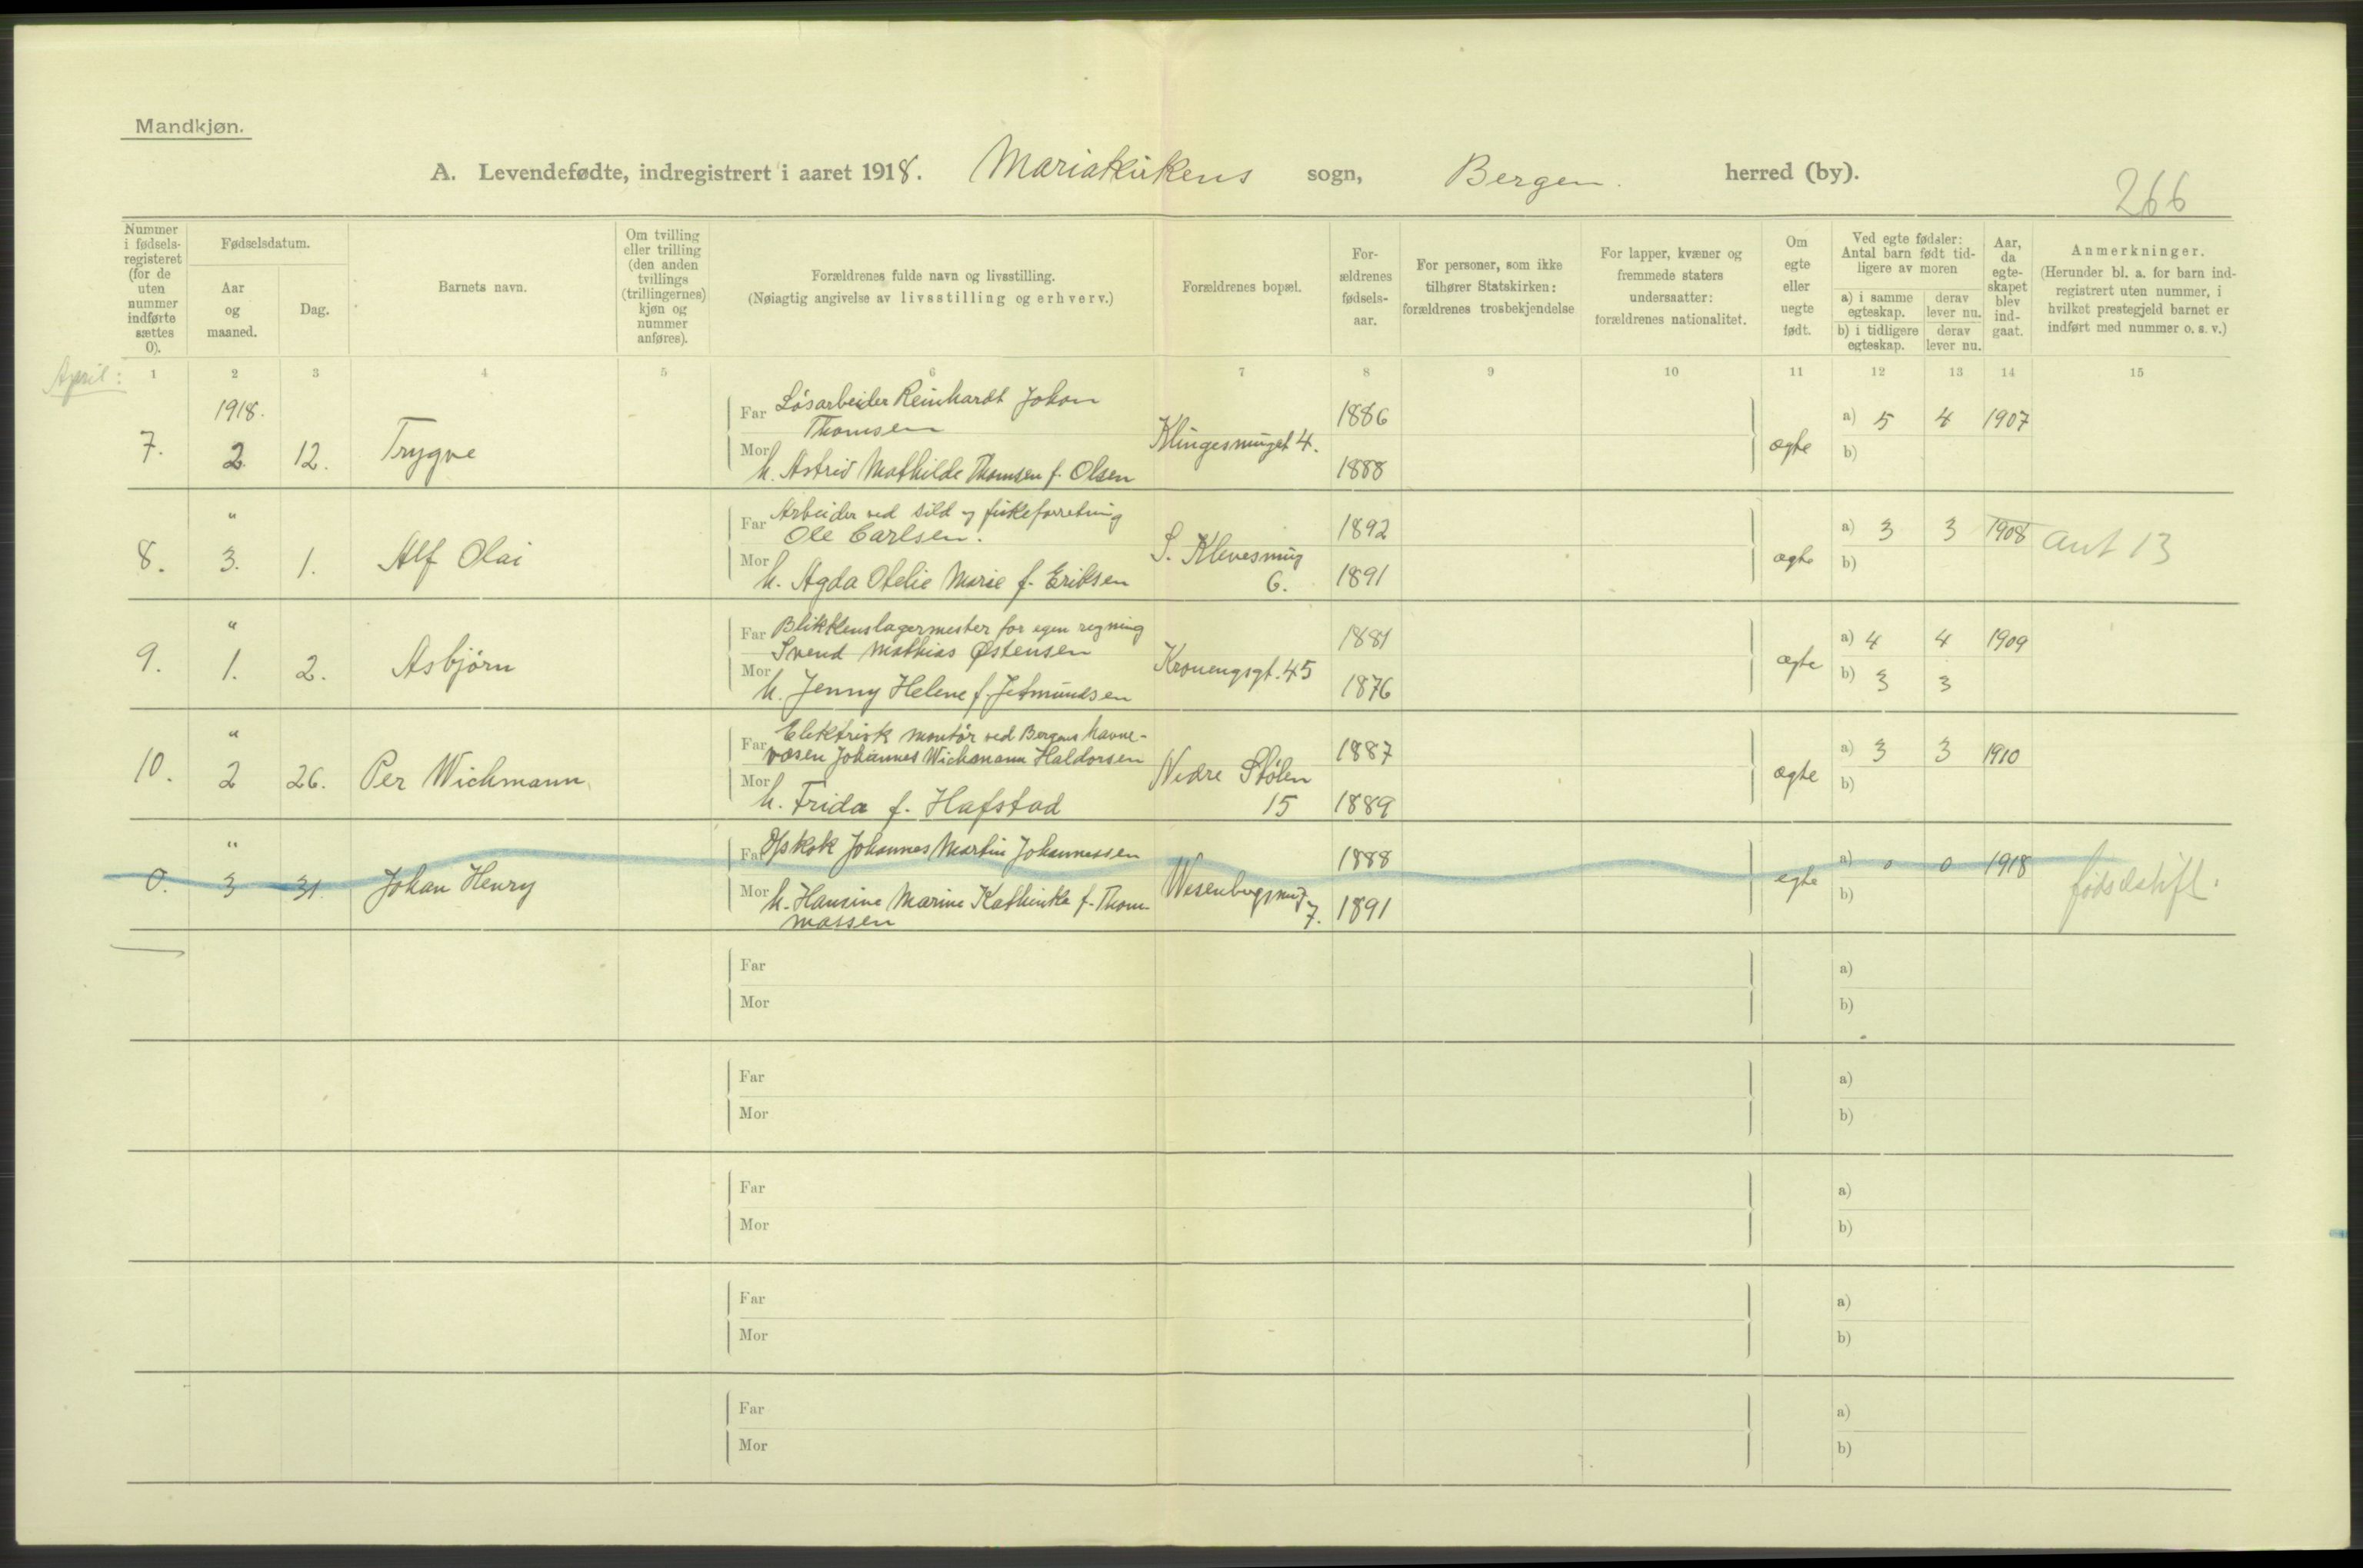 Mandkjøn.
A. Levendefødte, indregistrert i aaret 1918. Mariakirkens sogn, Bergen. herred (by).
266
Nummer i fødsels-registeret (for de uten nummer indførte sættes 0).
Fødselsdatum.
Aar og maaned.
Dag.
Barnets navn.
Om tvilling eller trilling (den anden tvillings (trillingernes) kjøn og nummer anføres).
Forældrenes fulde navn og livsstilling.
(Nøiagtig angivelse av livsstilling og erhverv.)
Forældrenes bopæl.
For-ældrenes fødsels-aar.
For personer, som ikke tilhører Statskirken: forældrenes trosbekjendelse
For lapper, kvæner og fremmede staters undersaatter: forældrenes nationalitet.
Om egte eller uegte født.
Ved egte fødsler: Antal barn født tid-ligere av moren
a) i samme egteskap.
derav lever nu.
b) i tidligere egteskap.
derav lever nu.
Aar, da egte-skapet blev ind-gaat.
Anmerkninger.
(Herunder bl. a. for barn ind-registrert uten nummer, i hvilket prestegjeld barnet er indført med nummer o. s. v.)
April:
1 2 3 4 5 6 7 8 9 10 11 12 13 14 15
1918.
7. 2. 12. Trygve
Far Løsarbeider Reinhardt Johan
Thomsen
Mor h. Astrid Mathilde Thomsen f. Olsen
Klingesmuget 4.
1886
1888
egte
a) 5 4 1907
b)
"
8. 3. 1. Alf Olai
Far Arbeider ved sild og fiskeforretning
Ole Carlsen.
Mor h. Agda Otelie Marie f. Eriksen
S. Klevesmug
6.
1892
1891
egte
a) 3 3 1908 Ant 13
b)
"
9. 1. 2. Asbjørn
Far Blikkenslagermester for egen regning
Svend Mathias Østensen
Mor h. Jenny Helene f. Jetmundsen
Kronengsgt. 45
1881
1876
egte
a) 4 4 1909
b) 3 3
"
10. 2 26. Per Wichmann
Far Elektrisk montør ved Bergens Havne-
væsen Johannes Wichmann Haldorsen
Mor h. Frida f. Hafstad
Nedre Stølen
15
1887
1889
egte
a) 3 3 1910
b)
"
0. 3 31. Johan Henry
Far D/skok Johannes Martin Johannessen
Mor h. Hansine Marine Kathinka f. Thom-
massen
Wesenbergsmug
7.
1888
1891
egte
a) 0 0 1918
b)
fødselstift.
Far
Mor
a)
b)
Far
Mor
a)
b)
Far
Mor
a)
b)
Far
Mor
a)
b)
Far
Mor
a)
b)